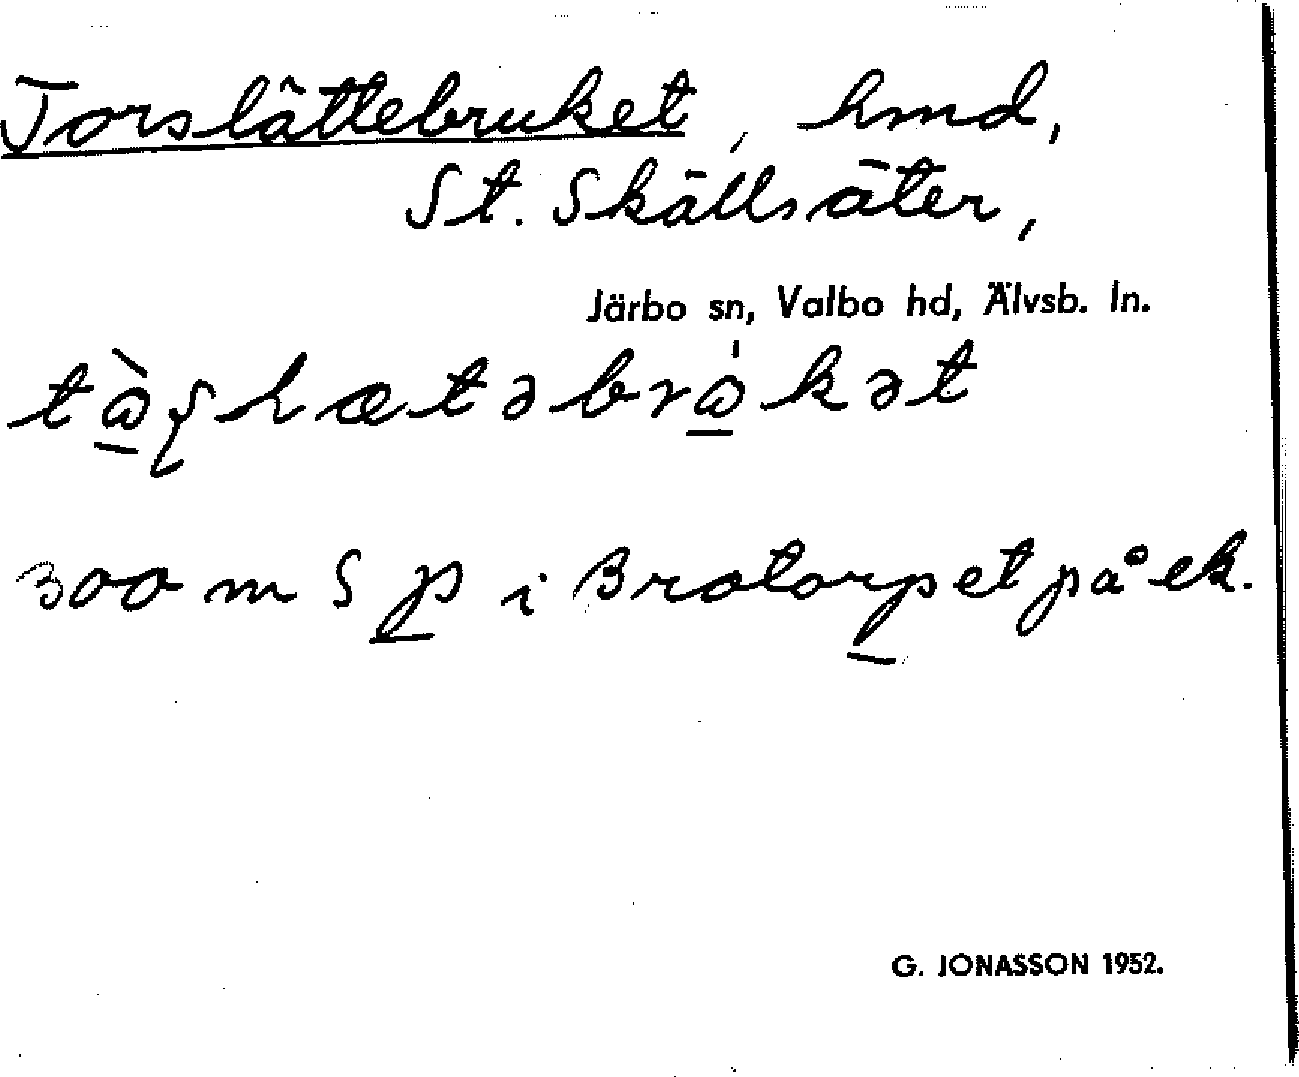 Torslättebruket, hmd,
St. Skällsäter,
Järbo sn, Valbo hd, Älvsb. ln.
300 m S p i Brotorpet på ek.
G. JONASSON 1952.